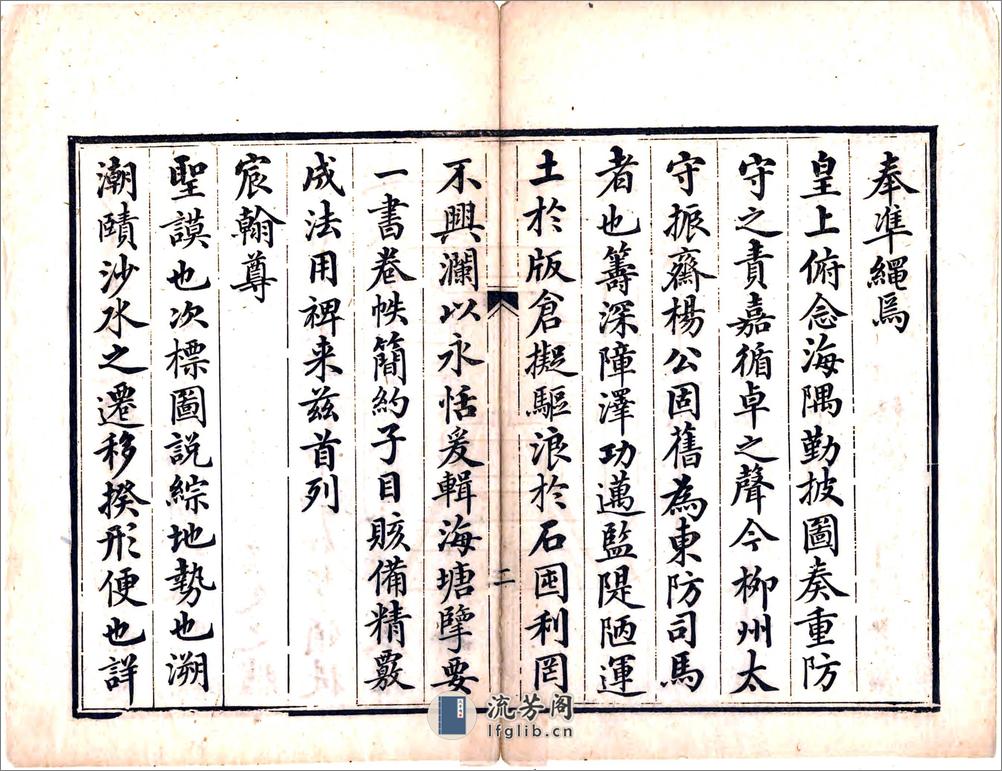 奉準繩焉
皇上俯念海隅勤披圖奏重防
守之責嘉循卓之聲今柳州太
守振齋楊公固舊為東防司馬
者也籌深障澤功邁監隄陋運
土於版倉擬驅浪於石囷利罔
不興瀾以永恬爰輯海塘擥要
一書卷帙簡約子目賅備精覈
成法用裨来茲首列
宸翰尊
聖謨也次標圖説綜地勢也溯
潮賾沙水之遷移揆形便也詳
二
流芳阁
lfglib.cn